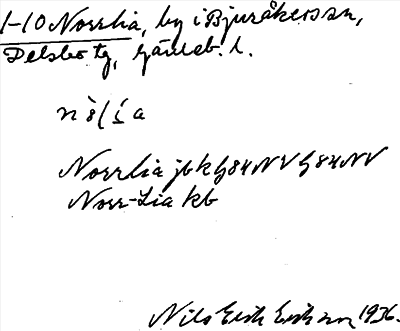 1-10 Norrlia, by i Bjuråkers sn,
Delsbo tg, Gävleb. l.
Norrlia jbk G84NV G84NV
Norr-Lia kb
Nils Erik Eriksson 1936.